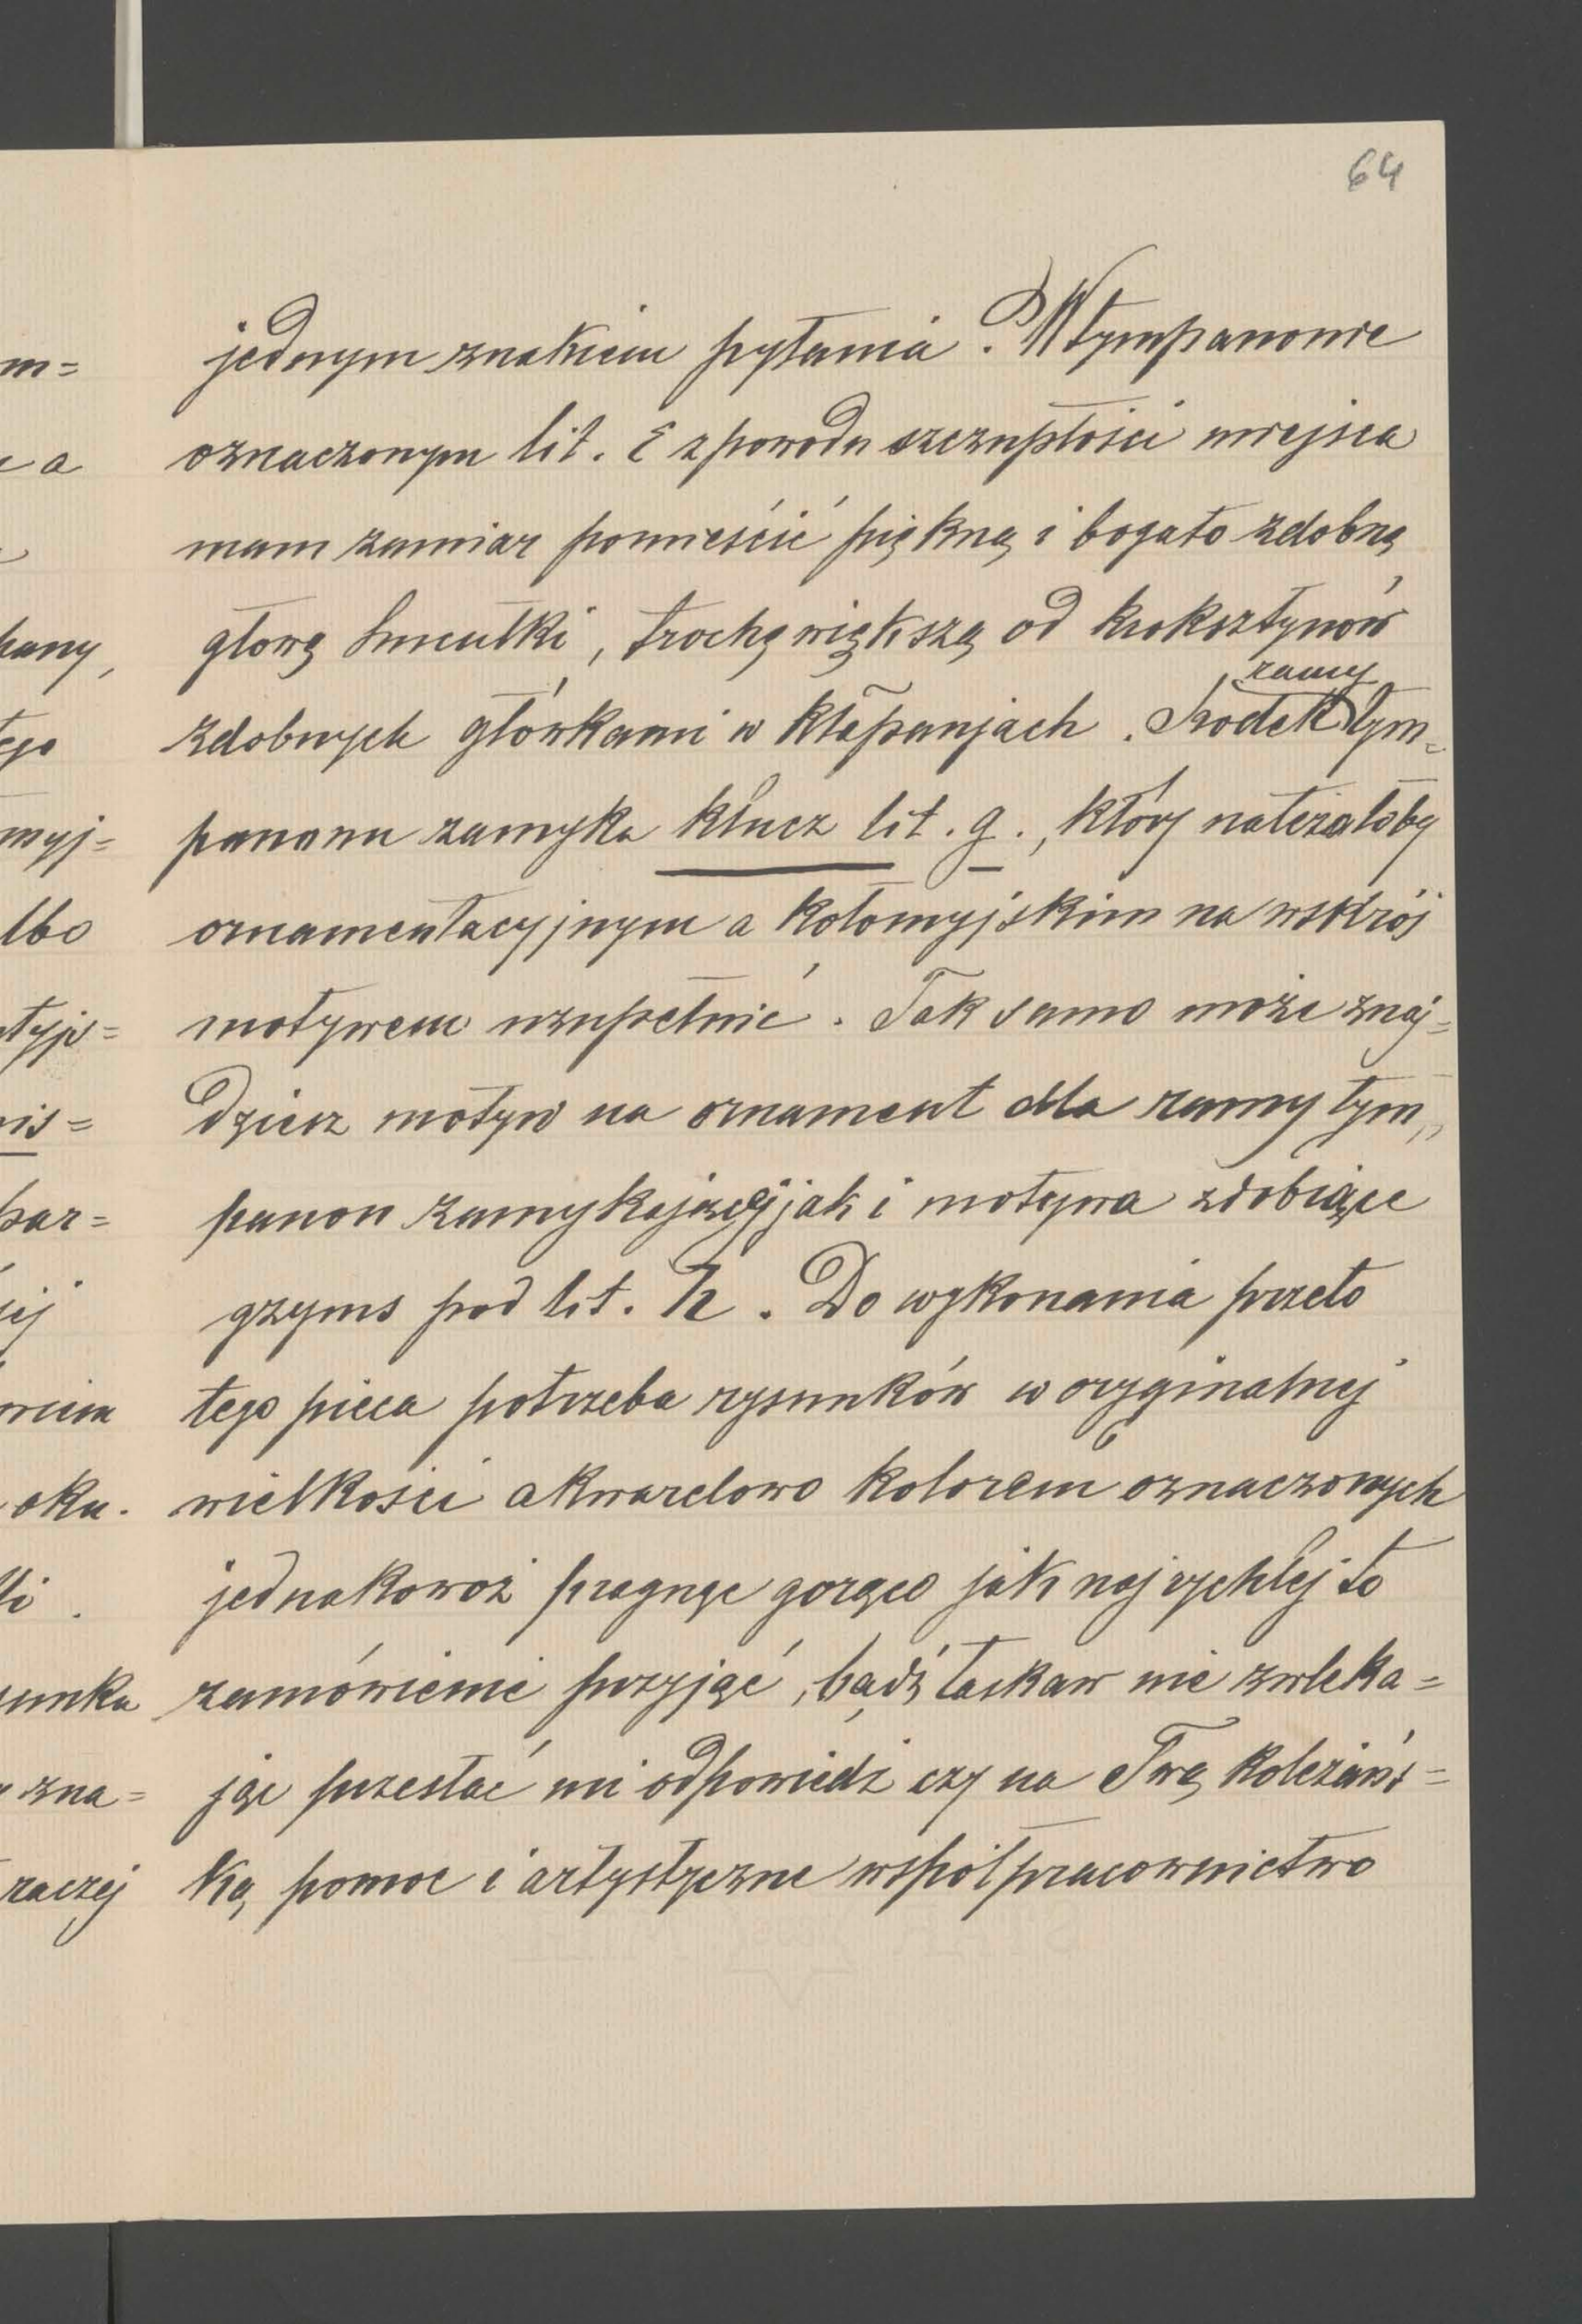 64
jednym znakiem pytania. W tympanonie
oznaczonym lit. E z powodu szczupłości miejsca
mam zamiar pomieścić piękną i bogato zdobną
głowę Smutki, trochę większą od kroksztynów
ramy
zdobnych główkami w kłapanjach. Środek tym=
panonu zamyka klucz lit. g., który należałoby
ornamentacyjnym a kołomyjskim na wskróś
motywem uzupełnić. Tak samo może znaj=
dziesz motyw na ornament dla ramy tym„
panon zamykającej jak i motywa zdobiące
gzyms pod lit. h. Do wykonania przeto
tego pieca potrzeba rysunków w oryginalnej
wielkości akwarelowo kolorem oznaczonych
jednakowoż pragnąc gorąco jak najrychlej to
zamówienie przyjąć, bądź łaskaw nie zwleka=
jąc przesłać mi odpowiedź czy na Twą koleżańs=
ką pomoc i artystyczne współpracownictwo
m=
a
pany,
tego
myj=
lbo
typ=
nis=
par=
oku.
sunku
zna=
raczej